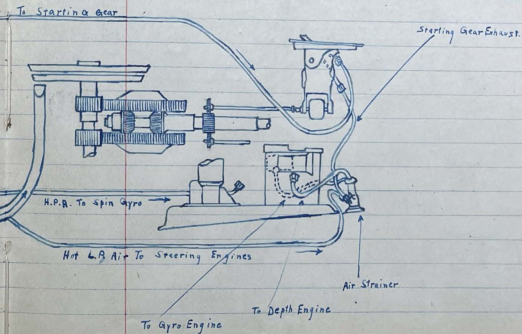 To Starting Gear
Starting Gear Exhaust.
H.P.A. To Spin Gyro
Hot L.P. Air To Steering Engines
Air Strainer
To Depth Engine
To Gyro Engine